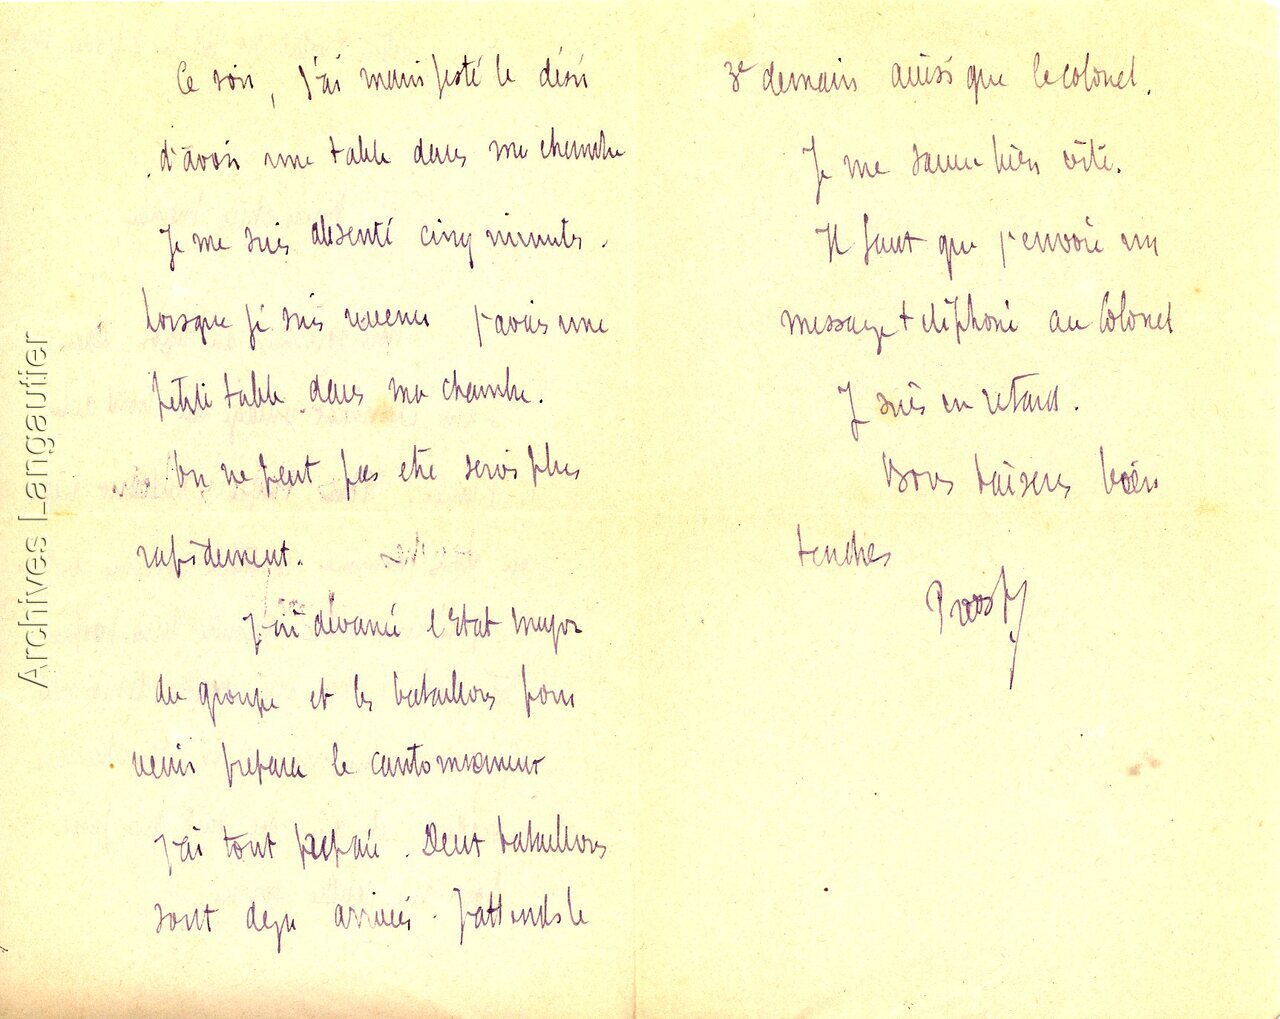 Ce soir, j'ai manifesté le désir
d'avoir une table dans ma chambre
Je me suis absenté cinq minutes.
Lorsque je suis revenu j'avais une
petite table dans ma chambre.
On ne peut pas etre servis plus
rapidement.
J'ai devancé l'Etat major
du groupe et les bataillons pour
venir preparer le cantonnement
j'ai tout préparé. Deux bataillons
sont deja arrivés. J'attends le
3e demain aussi que le colonel.
Je me sauve bien vite.
Il faut que j'envoie un
message téléphoné au Colonel
Je suis en retard.
Bons baisers bien
tendres
Archives Langautier